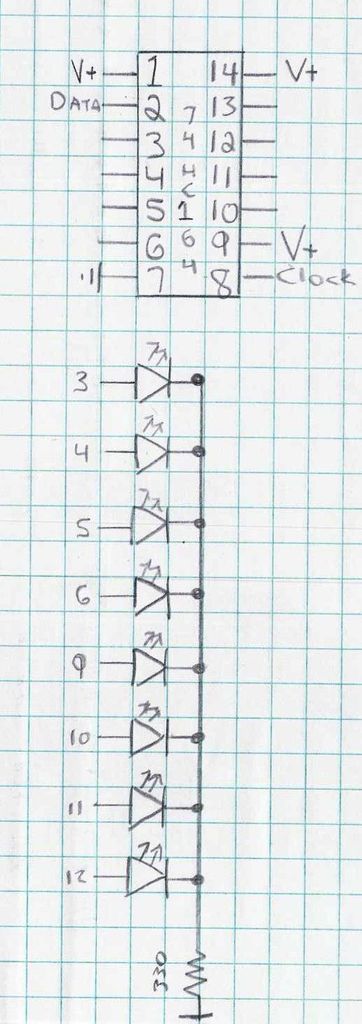 V+ 1 14 V+
DATA 2 13
3 12
4 11
5 10
6 9 V+
7 8 Clock
74HC164
3
4
5
6
9
10
11
12
330